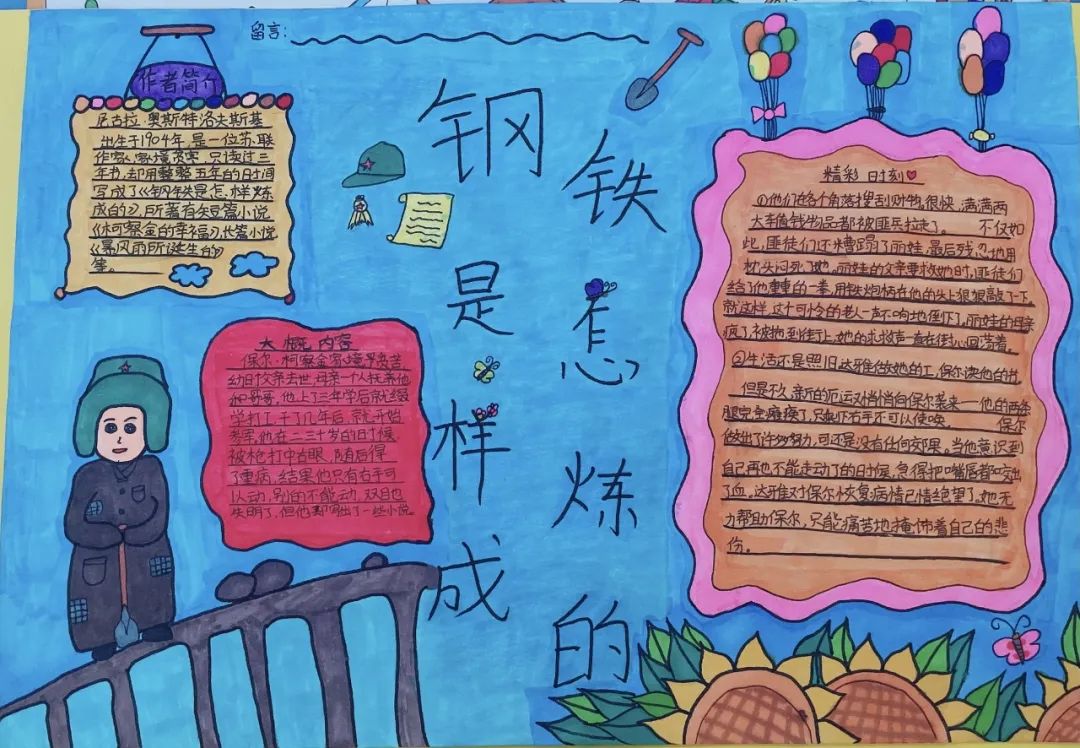 留言:
钢铁是怎样炼成的
作者简介
尼古拉·奥斯特洛夫斯基
出生于1904年,是一位苏联
作家,家境贫寒,只读过三
年书,却用整整五年的时间
写成了《钢铁是怎样炼
成的》,所著有短篇小说
《柯察金的幸福》,长篇小说
《暴风雨所诞生的》
等。
大概内容
保尔·柯察金家境早贫苦
幼时父亲去世,母亲一个人抚养他
和哥哥,他上了三年学后就缀
学打工,干了几年后,就开始
参军,他在二三十岁的时候
被枪打中右眼,随后得
了重病,结果他只有右手可
以动,别的不能动,双目也
失明了,但他却写出了一些小说。
精彩时刻
①他们在各个角落搜刮财物,很快,满满两
大车值钱物品都被匪兵拉走了。 不仅如
此,匪徒们还糟蹋了丽娃,最后残忍地用
枕头闷死了她。丽娃的父亲要救她时,匪徒们
给了他重重的一拳,用铁炮柄在他的头上狠狠敲了一下。
就这样,这个可怜的老人一声不响地倒下了,丽娃的母亲
疯了,被拖到街上,她的求救声一直在街心回荡着。
②生活还是照旧,达雅做她的工,保尔读他的书
但是不久,新的厄运又悄悄向保尔袭来——他的两条
腿完全瘫痪了,只剩下右手还可以使唤。 保尔
做出了许多努力,可还是没有任何效果。当他意识到
自己再也不能走动了的时候,急得把嘴唇都咬出
了血。达雅对保尔恢复病情已情绝望了,她无
力帮助保尔,只能痛苦地掩饰着自己的悲
伤。